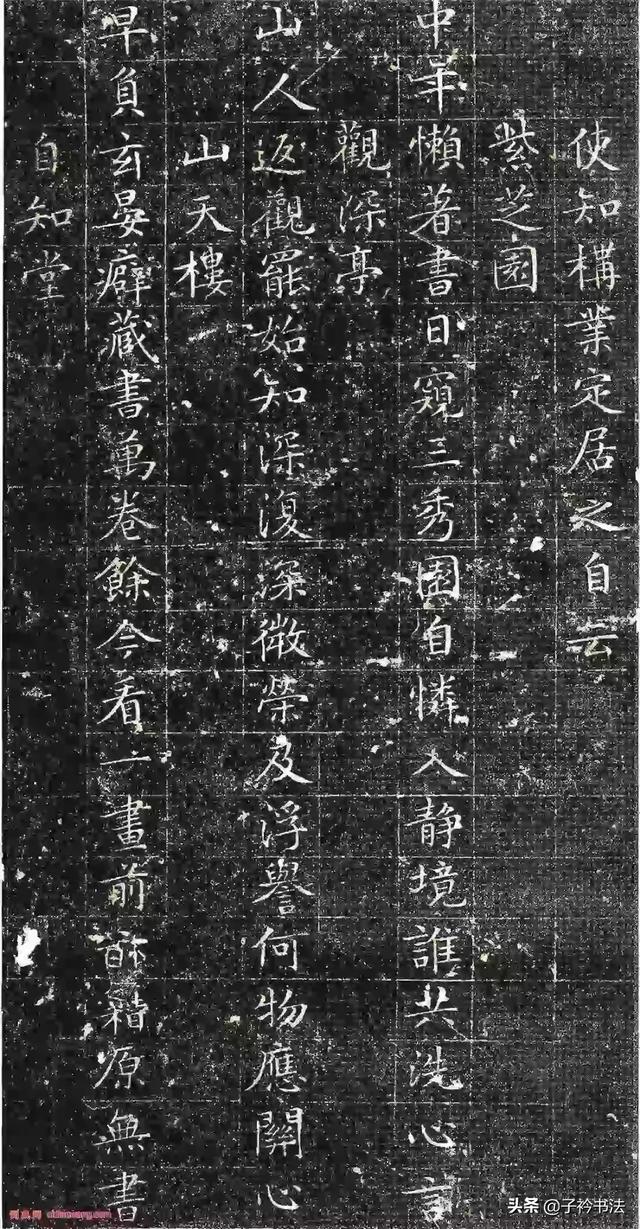 使知構業定居之自云
紫芝園
中年懶著書日窺三秀園自憐入静境誰共洗心言
觀深亭
山人返觀罷始知深復深微榮及浮譽何物應關心
山天樓
早負玄晏癖藏書萬卷餘今看一畫前稽原無書
自知堂
头条@子衿书法